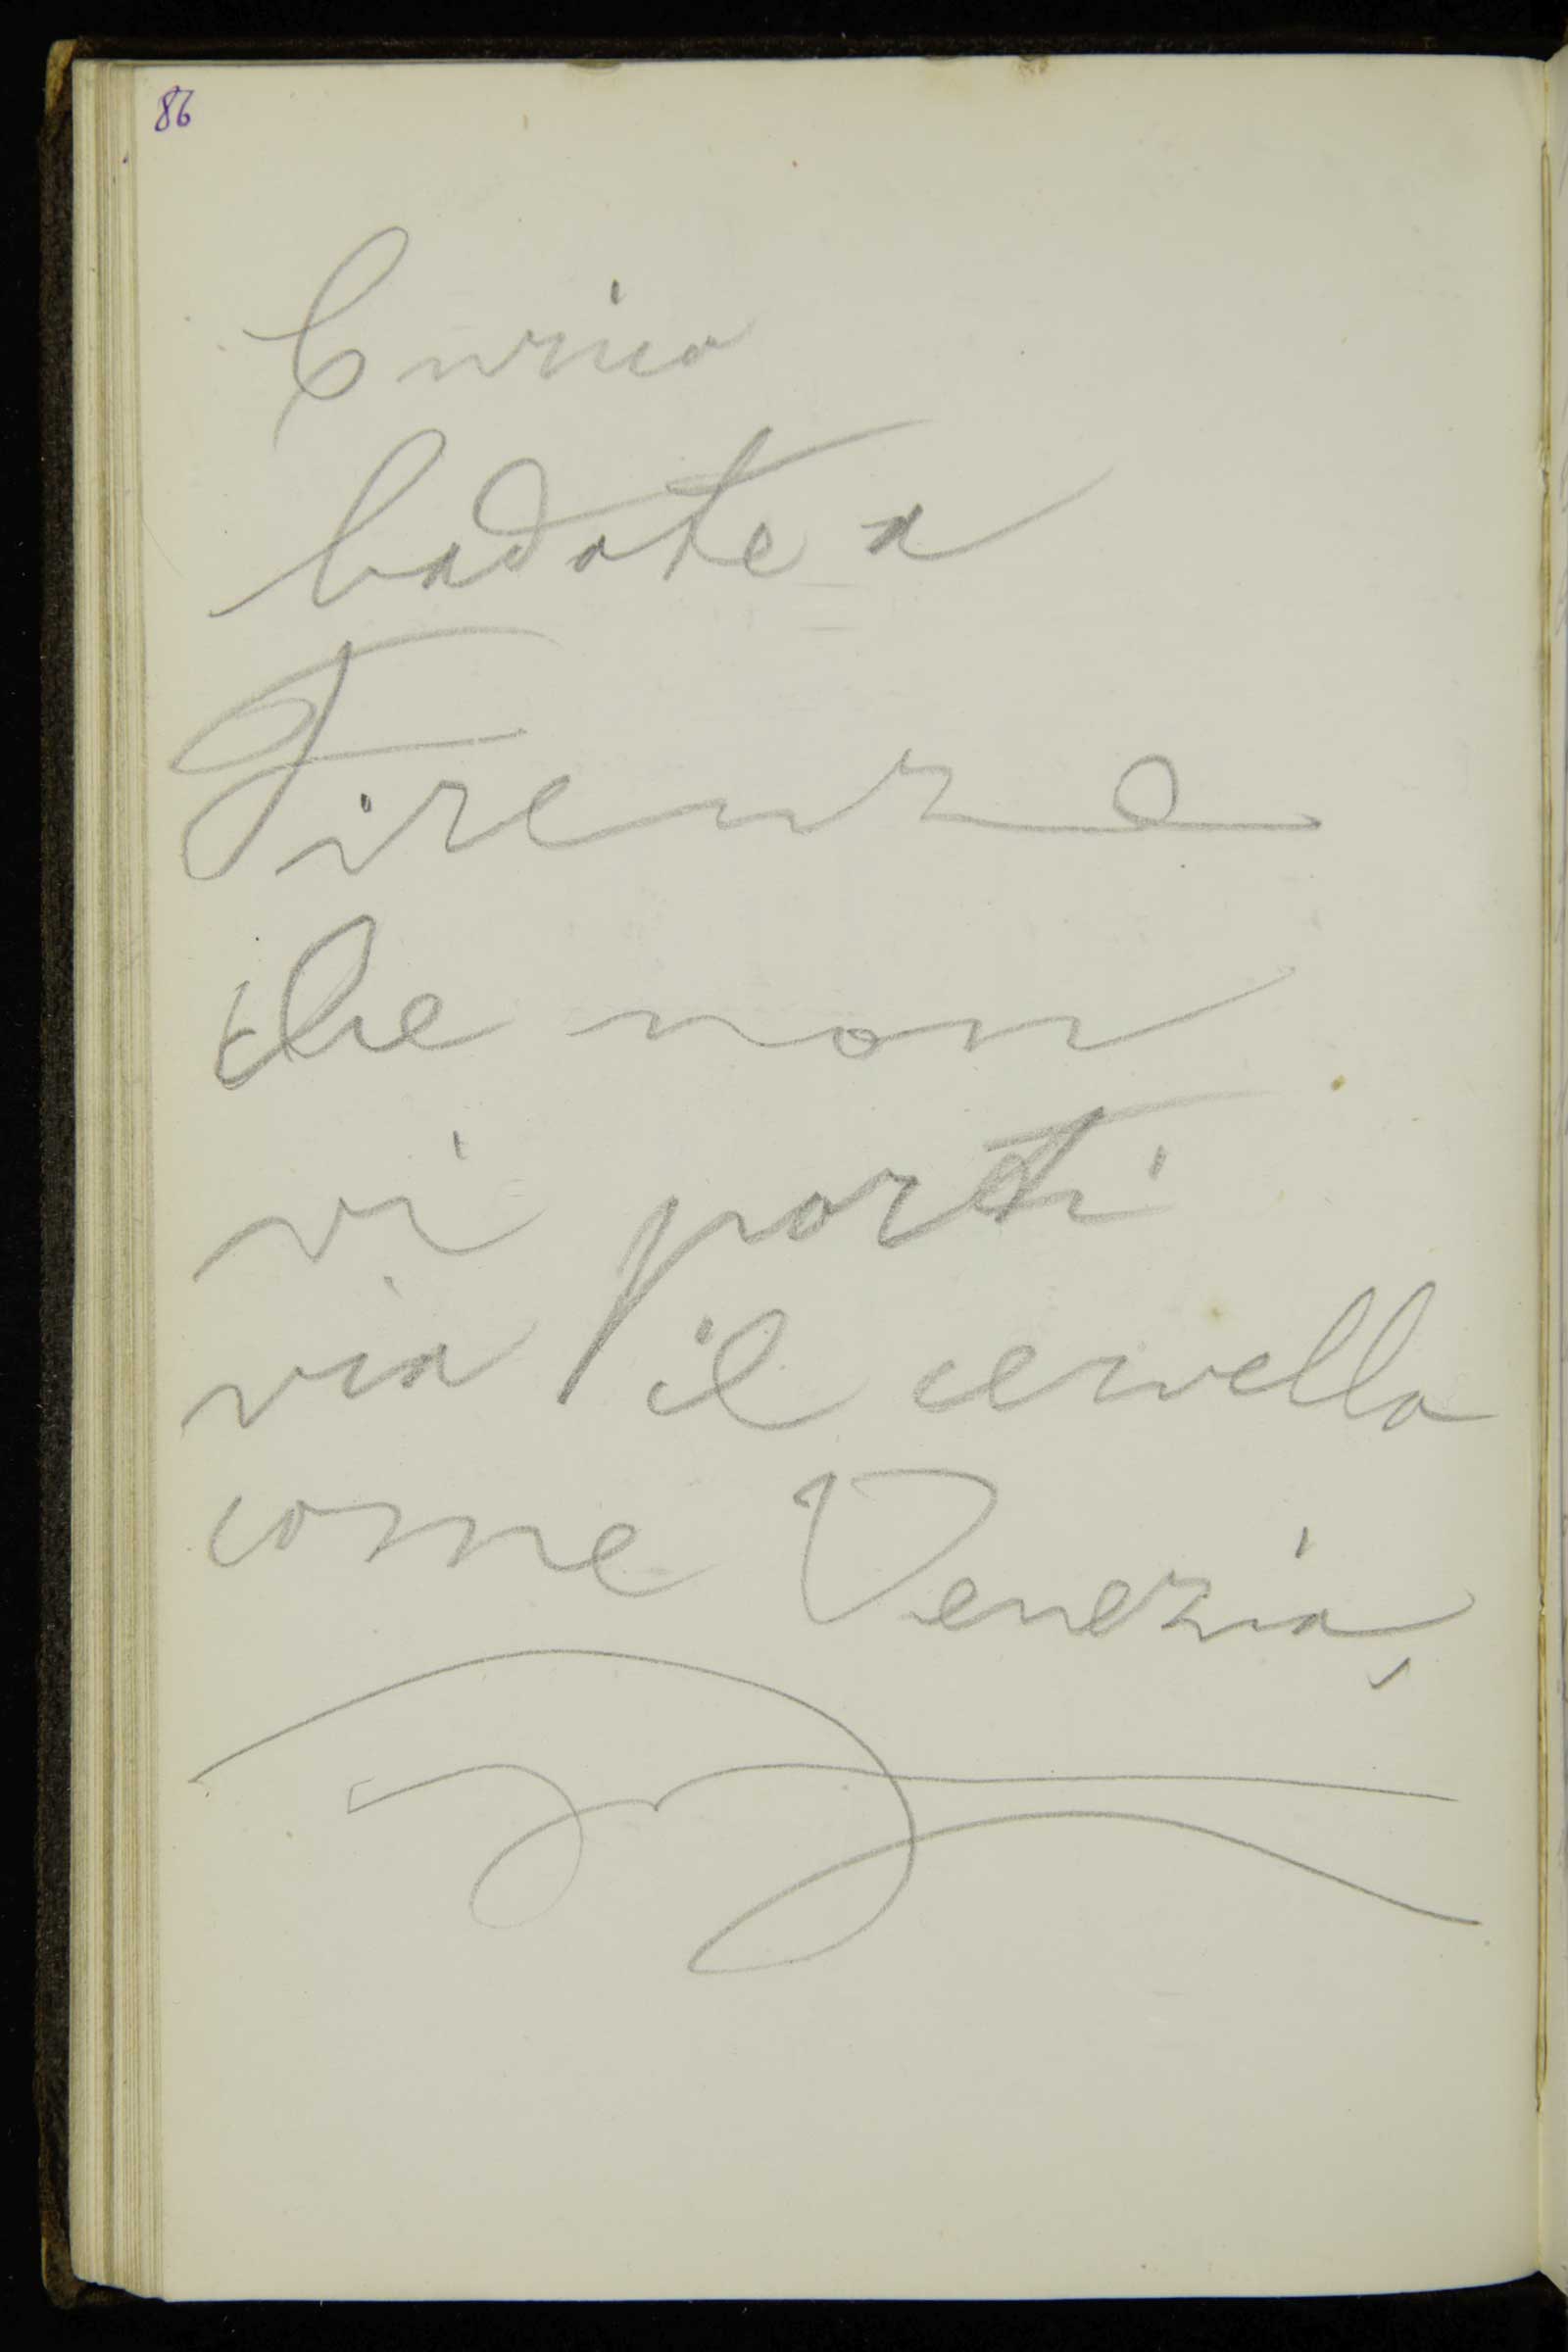 86
Enrico
badate a
Firenze
che non
vi porti
via il cervello
come Venezia